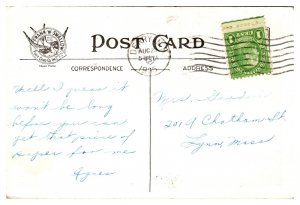 POST CARD
CORRESPONDENCE
ADDRESS
AUG
Hello I guess it
won't be long
before you can
get that piece of
paper for me
Agnes
Mrs.
2019 Chatham St,
Lynn, Mass